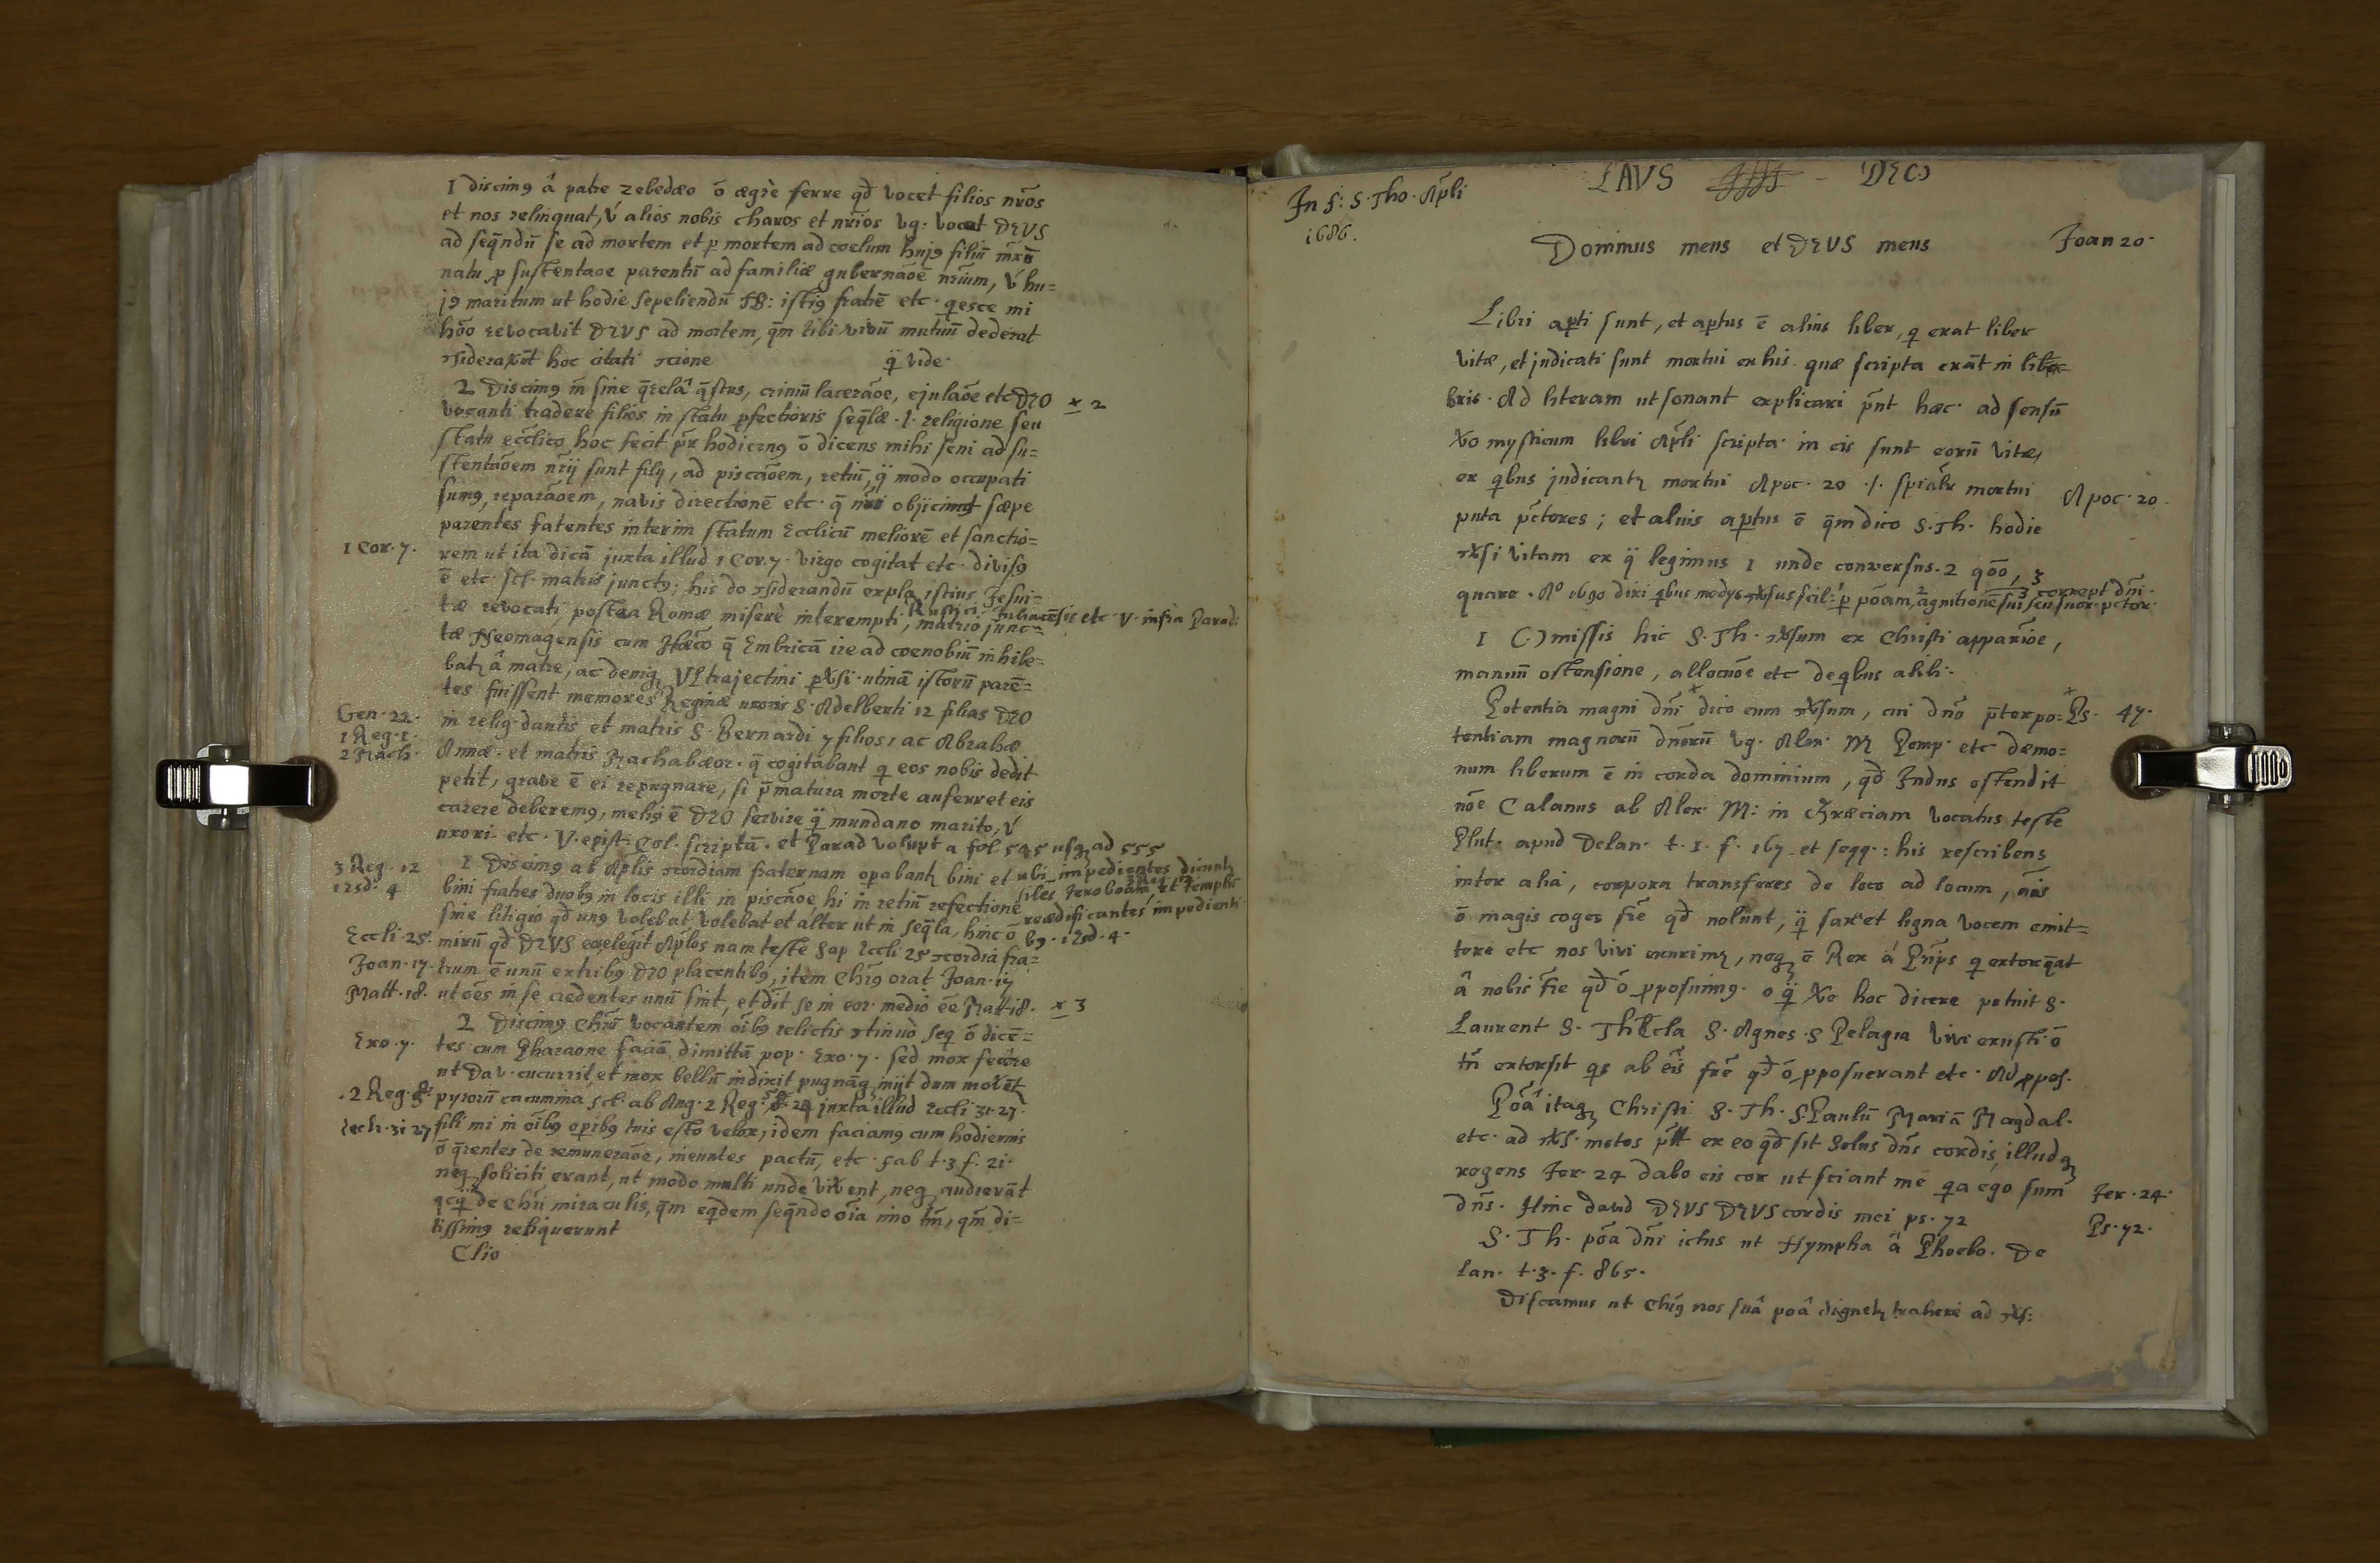 I discimꝰ â patre Zebedæo ō ægrè ferre qđ vocet filios nr̄os
et nos relinquat, v́ alios nobis charos et nr̄ios vg. vocat DEVS
ad seq̄ndū se ad mortem et p mortem ad coelum hujꝰ filiū
natu, p sustentaoe parentū ad familiæ gubernaōē nr̄ium, v́ hu=
jꝰ maritum ut hodie sepeliendū istiꝰ fratrē etc. qesce mi
hōo revocavit DEVS ad mortem, q̄m tibi vivū mutuū dederat
hoc citati q̄ vide.
2 Discimꝰ m̄ sine q̄relâ q̄stus, crinū laceraōe, ejulaōe etc DEO × 2
vocanti tradere filios in statu pfectioris seq̄læ .i. religione seu
statu eccl̄ico hoc fecit pr̄ hodiernꝰ ō dicens mihi seni ad su=
stentaōem nr̄ij sunt filij, ad piscaōem, retiū, q̄ modo occupati
sumꝰ, reparaōem, navis directionē etc. q̄ objiciunt sæpe
parentes fatentes interim statum Ecclicū meliorē et sanctio=
1 Cor. 7. rem ut ita dicā juxta illud 1 Cor. 7. virgo cogitat etc. divisꝰ
ē etc. scl. matris junctꝰ; his do siderandū expla istius Jesui=
tæ revocati, postea Romæ miserè interempti, Rustici etc. V. infra Parad.
tæ Neomagensis cum q̄ Embricā ire ad coenobiū inhibe=
batꝛ â matre, ac deniqꝫ Vltrajectini utinā istorū parē=
tes fuissent memores Reginæ uxoris S. Adelberti 12 filias DEO
Gen. 22. in relig. dantis et matris S. Bernardi 7 filios, ac Abrahæ
1 Reg. 1.
2 Mach. Annæ. et matris Machabæor. q̄ cogitabant q eos nobis dedit
petit, grave ē ei repugnare, si p̄matura morte auferret eis
carere deberemꝰ, meliꝰ ē DEO servire q̄ mundano marito, v́
uxori etc. V. epist. Col. scriptā. et Parad volupt a fol. 545 usqꝫ ad 555
3 Reg. 12 1 Discimꝰ ab Aplis cordiam fraternam opabantꝛ bini et ubi impedientes dicuntꝛ
1 Esd. 4 bini fratres duobꝰ in locis illi in piscaōe, hi in retiū refectione siles Jeroboam 3 Reg. 12 et templū
sine litigio qđ unꝰ volebat, volebat et alter ut in seq̄la, hinc ō reædificantes impedienti
Eccli. 25. mirū qđ DEVS eos elegit Aplos nam teste Sap Eccli 25 cordia fra= bꝰ. 1 Esd. 4.
Joan. 17. trum ē unū ex tribꝰ DEO placentibꝰ, item Chr̄ꝰ orat Joan. 17
Matt. 18. ut oēs in se credentes unū sint, et dīt se in eor. medio ēe Matt 18. × 3
2 Discimꝰ Chr̄ū vocantem ōibꝰ relictis tinuò seq ō dicē=
Exo. 7. tes cum Pharaone faciā dimittā pop. Exo. 7. sed mox
ut Dav. cucurrit, et mox bellū indixit pugnāqꝫ mijt dum
2 Reg. 5. pyrorū cacumina scl. ab Ang. 2 Reg. 5. 24 juxta illud Eccli 31. 27.
Eccli. 31 27 fili mi in ōibꝰ opibꝰ tuis esto velox, idem faciamꝰ cum hodiernis
ō q̄rentes de remuneraōe, ineuntes pactū, etc. Fab t. 3 f. 21.
neqꝫ soliciti erant, ut modo multi unde vivent, neqꝫ audierāt
qcq̄ de Chr̄i miraculis, q̄m eqdem seq̄ndo ōia imo tm̄, qm̄ di=
tissimꝰ reliquerunt
Clio
In f: S. Tho. Apli
1686.
LAVS DEO
Dominus meus et DEVS meus Joan 20.
Libri apti sunt, et aptus ē alius liber, q erat liber
vitæ, et judicati sunt mortui ex his quæ scripta erāt in
bris. Ad literam ut sonant explicari pn̄t hæc. ad sensū
Xo mysticum libri Apli scripta in eis sunt eorū vitæ,
ex qbus judicantꝛ mortui Apoc. 20 .i. spiālr mortui Apoc. 20.
puta pc̄tores; et alius aptus ē q̄m dico S. Th. hodie
si vitam ex q̄ legimus 1 unde conversus. 2 qōo, 3
quare. Ao 1690 dixi qbus modis sus scil: 1 p poām, 2 agnitionē sui seu suor. pctor. 3 corrept dn̄i.
1 Omissis hic S. Th. sum ex Christi appariōe,
manuū ostensione, allocuōe etc de qbus alibi.
Potentia magni dn̄i × dico eum sum, cui dn̄o p̄ter po= × Ps. 47.
tentiam magnorū dn̄orū vg. Alex. M Pomp. etc dæmo=
num liberum ē in corda dominium, qđ Indus ostendit
nōe Calanus ab Alex. M: in Græciam vocatus teste
Plut. apud Delan. t. 1. f. 167 et seqq.: his rescribens
inter alia, corpora transferes de loco ad locum, aīas
ō magis coges fr̄e qđ nolunt, q̄ saxa et ligna vocem emit=
tere etc nos vivi exurimꝛ, neqꝫ ē Rex â Prīps q extorqeat
â nobis fr̄e qđ ō pposuimꝰ. o q̄ Xo hoc dicere potuit S.
Laurent S. Thecla S. Agnes. S Pelagia vivi exusti. ō
tn̄ extorsit qs ab eīs fr̄e qđ ō pposuerant etc. Ad ppos.
Poā itaqꝫ Christi S. Th. S Paulū Mariā Magdal.
etc. ad s. motos ex eo qđ sit solus dn̄s cordis, illudqꝫ
regens Jer. 24 dabo eis cor ut sciant me qa ego sum Jer. 24.
dn̄s. Hinc david DEVS DEVS cordis mei ps. 72 Ps. 72.
S. Th. poā dn̄i ictus ut Nympha â Phoebo. De
lan. t. 3. f. 865.
Discamus ut Chr̄ꝰ nos suâ poâ dignetꝛ trahere ad